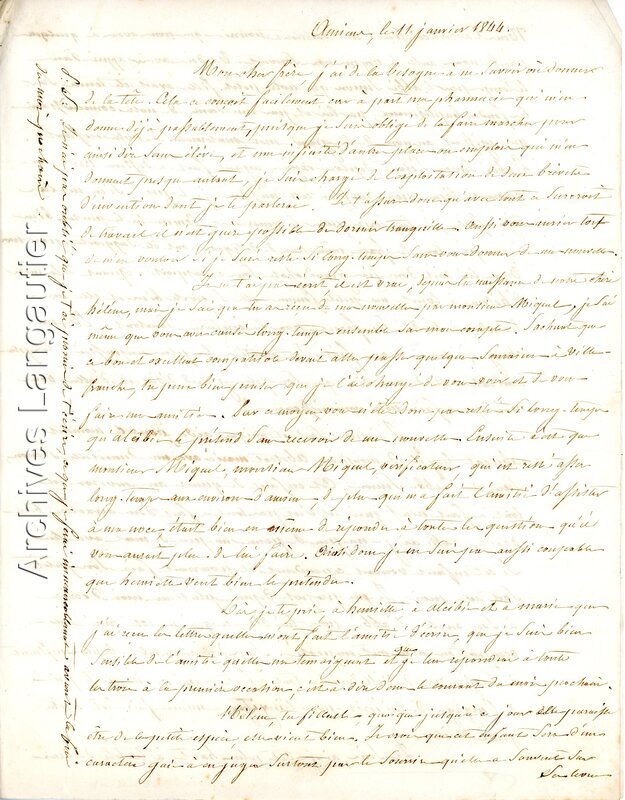 Amiens, le 11 janvier 1844.
Mon cher frère, j'ai de la besogne à ne savoir où donner
de la tête. Cela se conçoit facilement car à part ma pharmacie qui m'en
donne déjà passablement, puisque je suis obligé de la faire marcher pour
ainsi dire sans élève, et une infinité d'autre place ou emploir qui m'en
donnent presqu'autant, je suis chargé de l'exploitation de deux brevets
d'invention dont je te parlerai. Je t'assure donc qu'avec tout ce surcroit
de travail il n'est guère possible de dormir tranquille. Aussi vous auriez tort
de m'en vouloir si je suis resté si long-temps sans vous donner de mes nouvelles.
Je ne t'ai pas écrit il est vrai, depuis la naissance de notre chère
hélène, mais je sais que tu as reçu de mes nouvelles par monsieur Miquel, je sai
même que vous avez causé long-temps ensemble sur mon compte. Sachant que
ce bon et excellent compatriote devait aller passer quelques semaines à Ville-
franche, tu peux bien penser que je l'ai chargé de vous voir et de vous
faire mes amitiés. Par ce moyen, vous n'ête donc pas resté si long-temps
qu'alcibie le prétend sans recevoir de mes nouvelles. Ensuite c'est que
monsieur Miquel, monsieur Miquel, vérificateur, qui est resté assez
long-temps aux environs d'amiens, de plus qui m'a fait l'amitié d'assister
à ma noce était bien en même de répondre à toutes les questions qu'il
vous aurait plu de lui faire. Ainsi donc je n'en suis pas aussi coupable
que henriette veut bien le prétendre.
Dis je te prie à henriette à alcibie et à marie que
j'ai reçu les lettres quelles m'ont fait l'amitié d'écrire, que je suis bien
sensible de l'amitié qu'elles me témoignent et que je leur répondrai à toutes
les trois à la première occasion, c'est à dire dans le courant du mois prochain.
Hélène, ta filleule quoique jusqu'à ce jour elle paraisse
être de la petite espèce, elle vient bien. Je crois que cet enfant sera d'un
caractère gai à en juger surtout par le sourir quelle a souvent sur
ses lèvres
P.S. je t'ai promis de t'écrire ce que je ferai immanquablement avant la fin
du mois prochain.
Archives Langautier